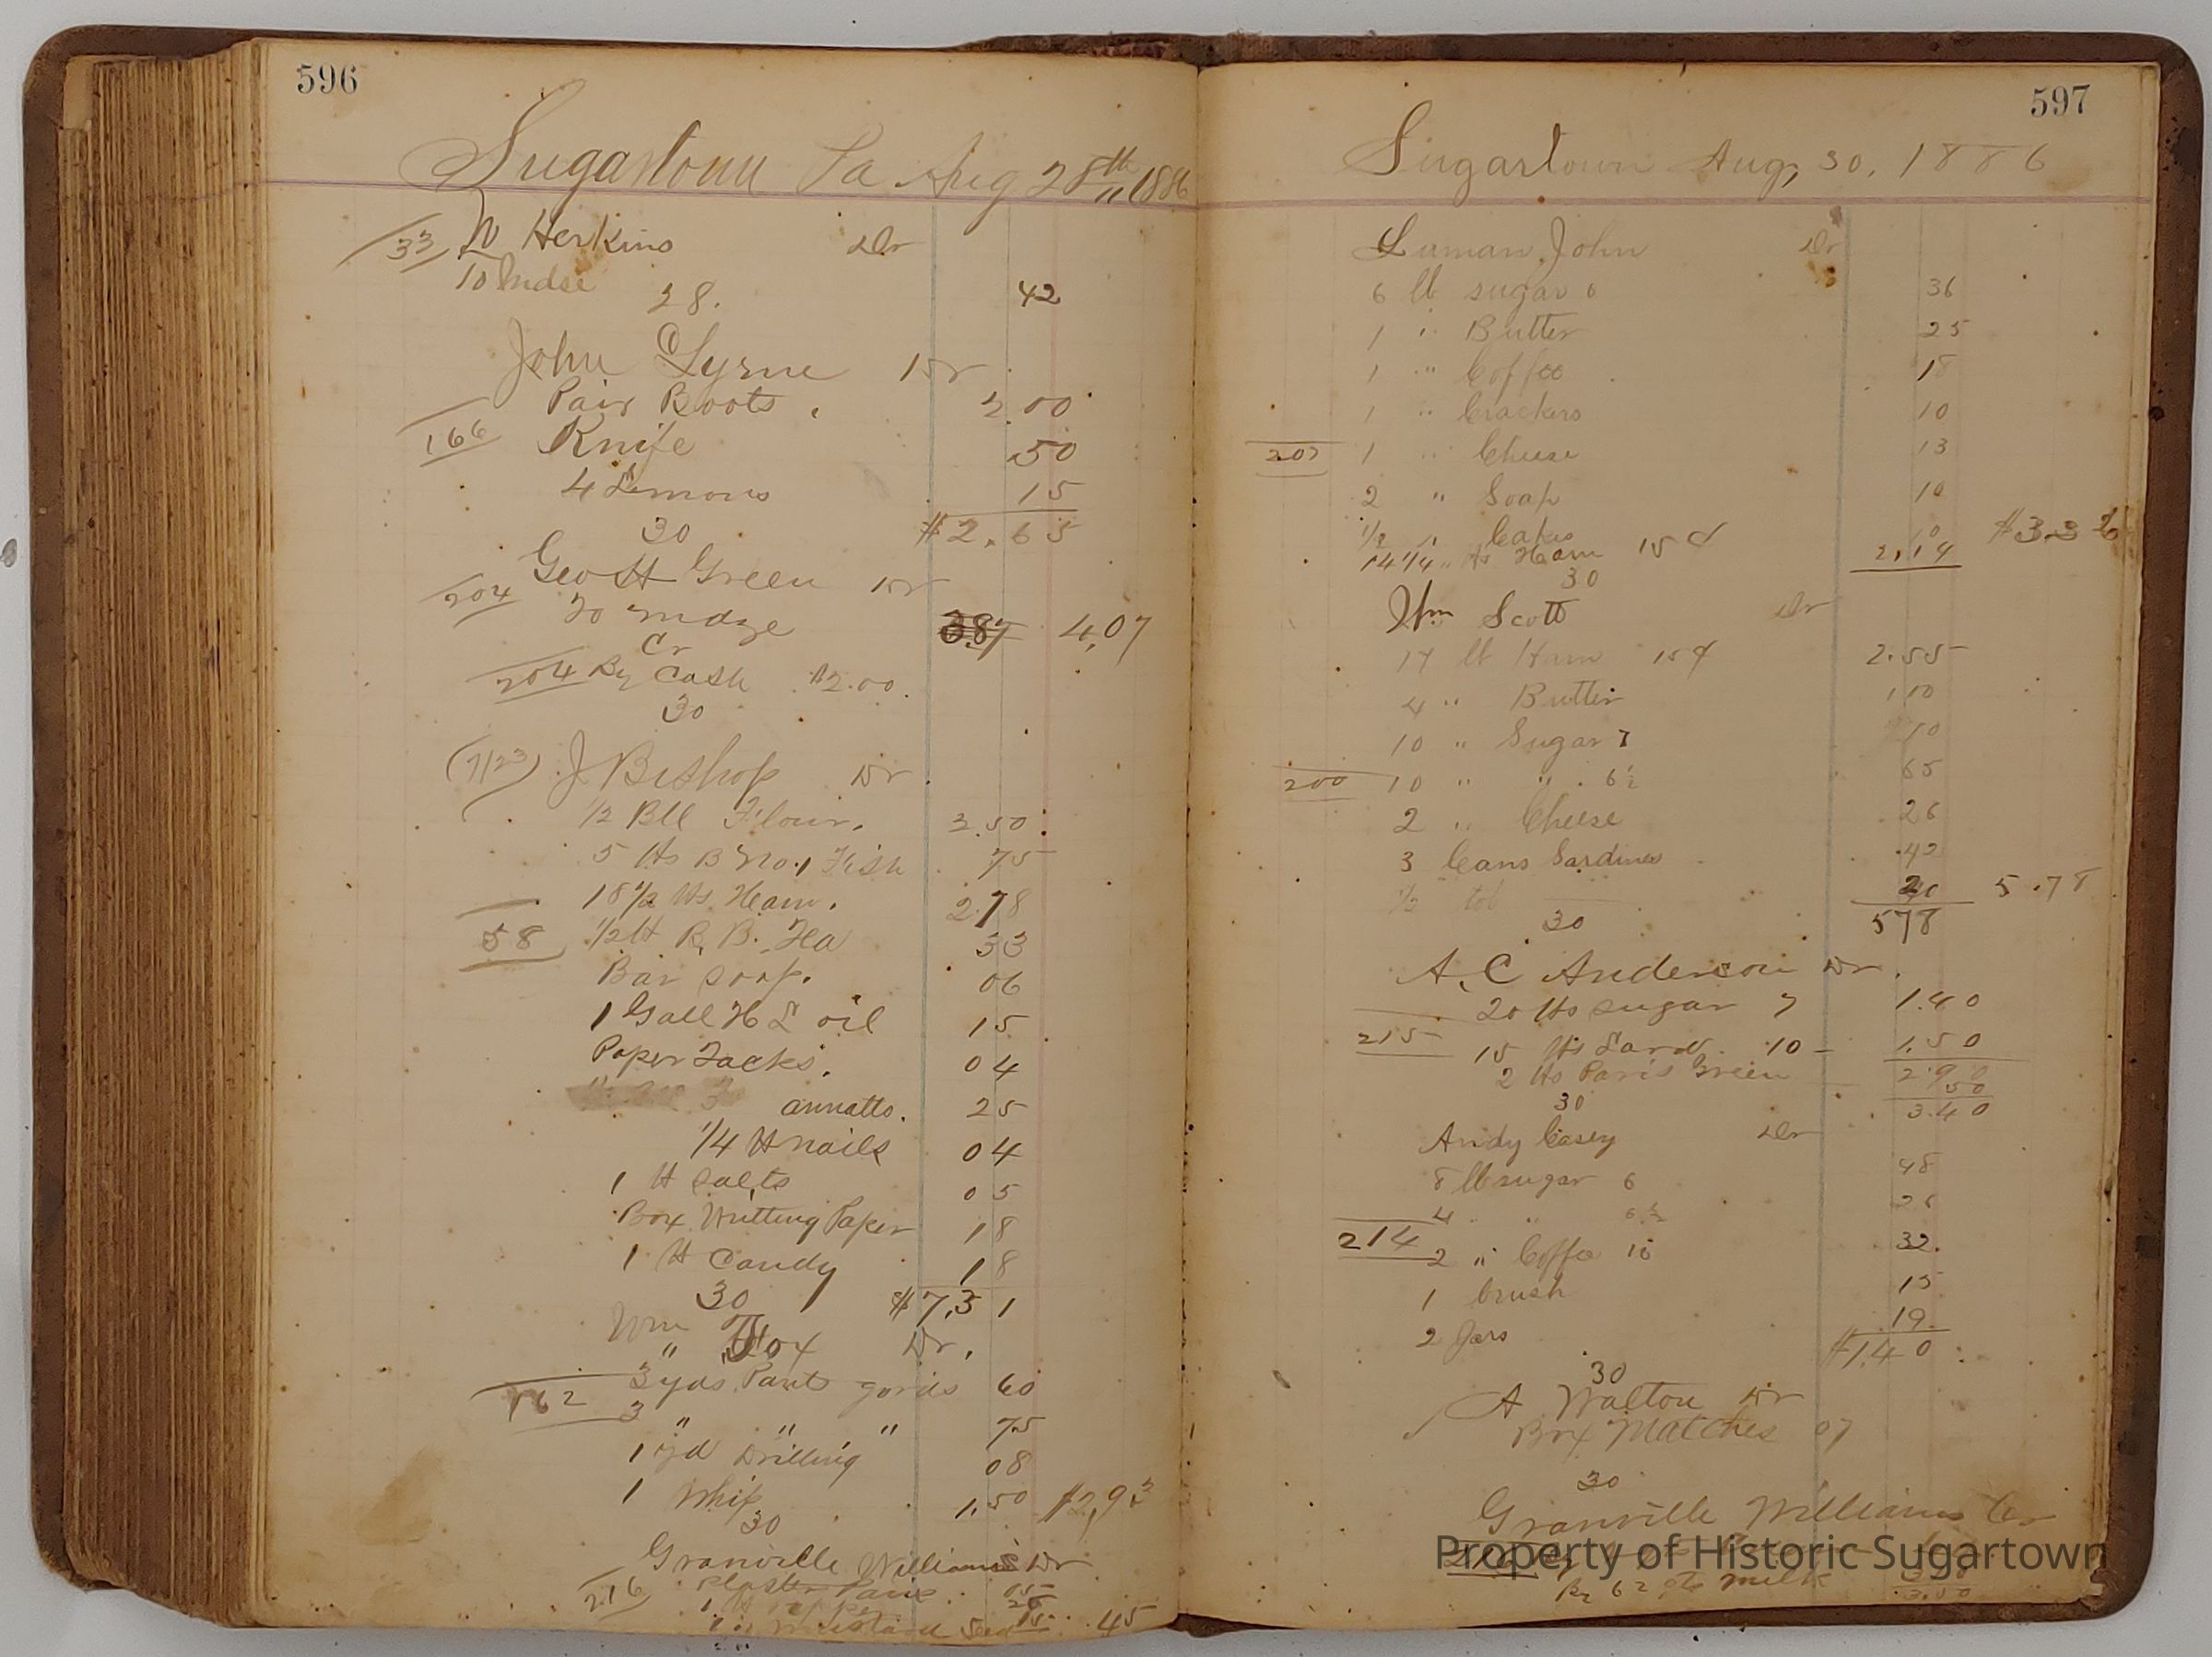 596
Sugartown Pa Aug 28th 1886
33 W Herkins Dr
To Mdse 42
28.
John Lyrne Dr
Pair Boots. 2 00
166 Knife 50
4 Lemons 15
30 $2.65
Geo H Green Dr
204 To mdze 387 4,07
Cr
204 By Cash $2.00.
30
(1123) J Bishop Dr
1/2 Bll Flour. 2.50
5 lts B No.1 Fish 75
18 1/2 lts Ham. 2.78
58 1/2 lt R. B. Tea 33
Bar soap. 06
1 Gall H L oil 15
Paper Tacks. 04
annatto. 25
1/4 lt nails 04
1 lt salts 05
Box Writting Paper 18
1 lt Candy 18
30 $7,31
Wm Fox Dr.
162 3 yds Pants goods 60
3 " " " 75
1 yd Drilling 08
1 Whip 1.50 $2,93
30
Granville Williams Dr
216 Plaster Paris 05
1 25
1 " Mustard Seed 15 .45
597
Sugartown Aug, 30, 1886
Luman, John Dr
6 lb sugar 6 36
1 " Butter 25
1 " Coffee 18
1 " Crackers 10
207 1 " Cheese 13
2 " Soap 10
1/2 " Cakes 10 $3.36
14 1/4 " lts Ham 15 ¢ 2,14
30
Wm Scott Dr
17 lb Ham 15 ¢ 2.55
4 " Butter 1,10
10 " Sugar 7 70
200 10 " " . 6 1/2 65
2 " Cheese 26
3 Cans Sardines .42
1/2 tob 20 5.78
30 578
A. C Anderson Dr.
20 lts sugar 7 1.40
215 15 lts Lard 10 1.50
2 lts Paris Green 2.90
50
30 3.40
Andy Casey Dr
8 lb sugar 6 48
4 " " 6 1/2 26
214 2 " Coffe 16 32.
1 brush 15
2 Jars 19
$1.40
30
A Walton Dr
Box Matches 07
30
Granville Williams Cr
By 62 qts Milk
Property of Historic Sugartown